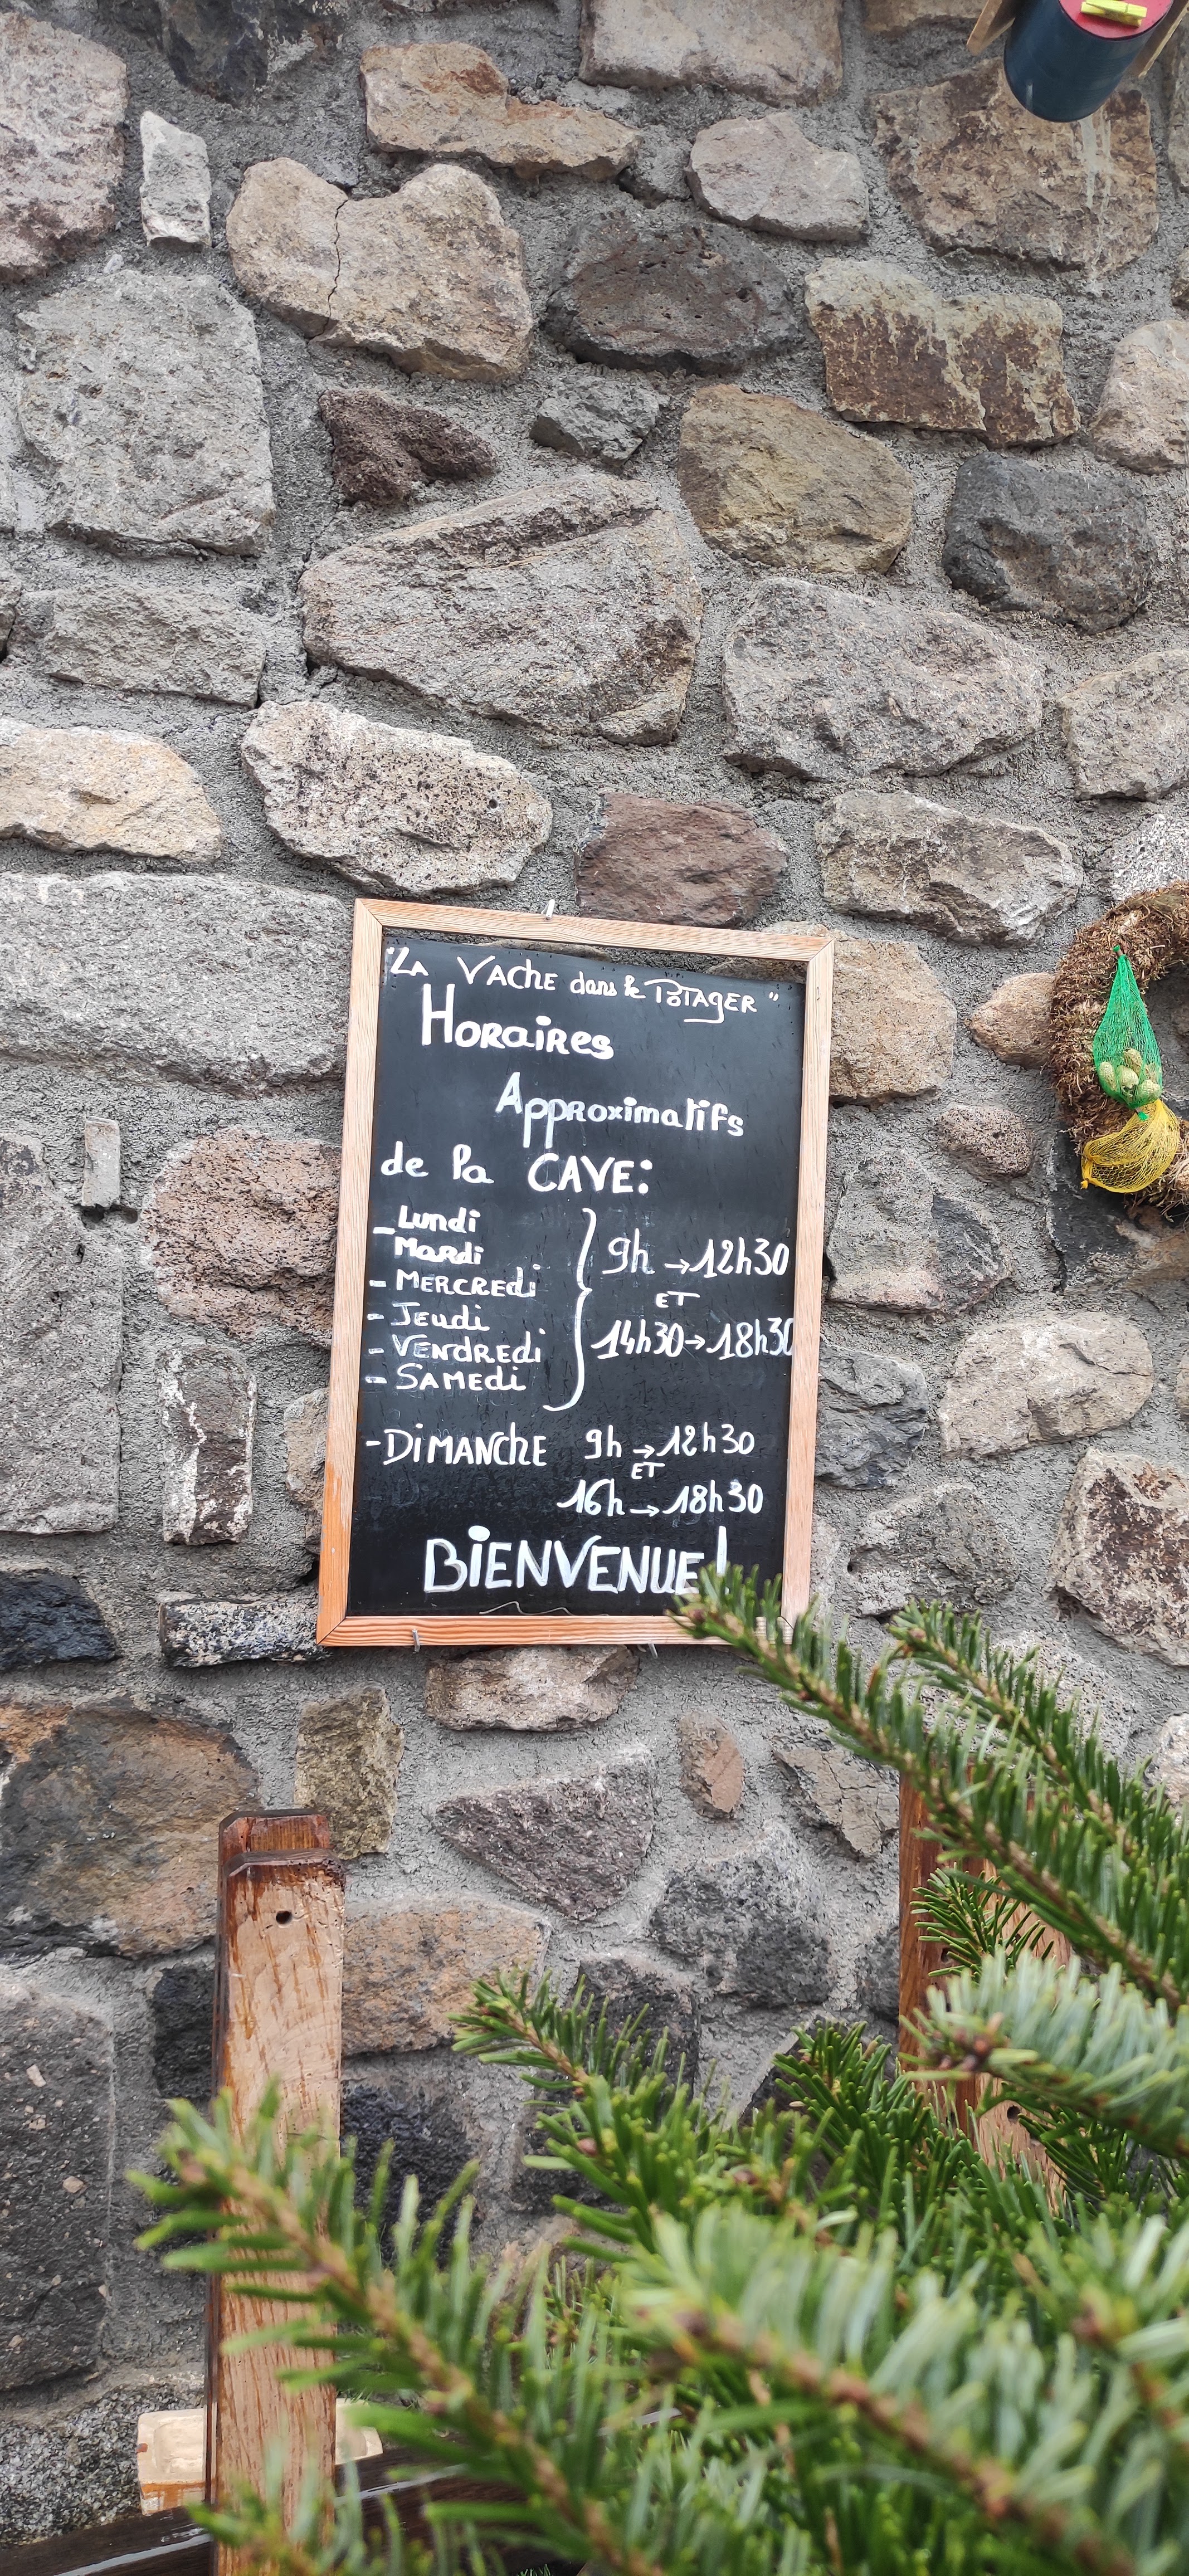 "La Vache dans le Potager"
Horaires
Approximatifs
de la CAVE:
- Lundi
Mardi
- Mercredi
- Jeudi
- Vendredi
- Samedi
9h → 12h30
ET
14h30 → 18h30
- DiMANCHE 9h → 12h30
ET
16h → 18h30
BiENVENUE!